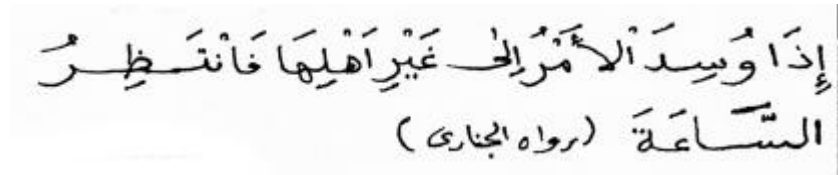 إِذَا وُسِدَ الأَمْرُ إِلَى غَيْرِ اَهْلِهَا فَانْتَظِرُ
السَّاعَةَ (رواه البخارى)